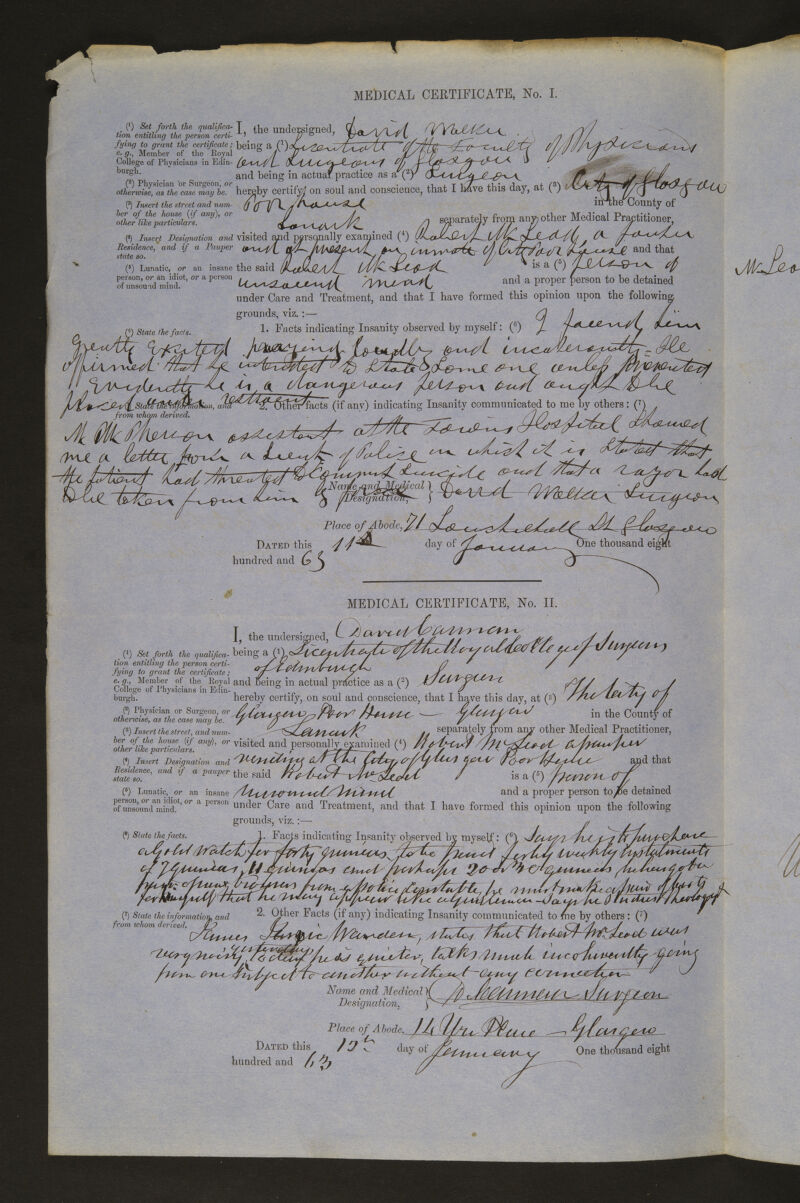 MEDICAL CERTIFICATE, No. I.
(¹) Set forth the qualifica-
tion entitling the person certi-
fying to grant the certificate;
e.g., Member of the Royal
College of Physicians in Edin-
burgh.
(²) Physician or Surgeon, or
otherwise, as the case may be.
(³) Insert the street and num-
ber of the house (if any), or
other like particulars.
(⁴) Insert Designation and
Residence, and if a Pauper
state so.
(⁵) Lunatic, or an insane
person, or an idiot, or a person
of unsound mind.
I, the undersigned, David Walker
being a (¹) Licentiate of the Faculty of Physicians
and Surgeons of Glasgow
and being in actual practice as a (²) Surgeon
hereby certify, on soul and conscience, that I have this day, at (³) City of Glasgow
Poor house in the County of
Lanark separately from any other Medical Practitioner,
visited and personally examined (⁴) Robert McLeod, a pauper
and at present an inmate of City Poor house and that
the said Robert McLeod is a (⁵) person of
unsound mind and a proper person to be detained
under Care and Treatment, and that I have formed this opinion upon the following
grounds, viz.:—
(⁶) State the facts.
1. Facts indicating Insanity observed by myself: (⁶) I found him
greatly excited praying loudly and incoherently - He
affirmed that he intended to stab some one unless prevented
Evidently he is a dangerous person and ought to be
placed under restraint
(⁷) State the information, and
from whom derived.
2. Other facts (if any) indicating Insanity communicated to me by others: (⁷)
Mr McPherson assistant at the Hospital showed
me a letter from a Lieut of Police in which it is stated that
the patient had threatened to commit suicide and that a razor had
to be taken from him by
Name and Medical
Designation, } David Walker Surgeon
Place of Abode, 71 Sauchiehall St Glasgow
DATED this 11th day of January One thousand eight
hundred and 63
MEDICAL CERTIFICATE, No. II.
(¹) Set forth the qualifica-
tion entitling the person certi-
fying to grant the certificate;
e.g., Member of the Royal
College of Physicians in Edin-
burgh.
(²) Physician or Surgeon, or
otherwise, as the case may be.
(³) Insert the street, and num-
ber of the house (if any), or
other like particulars.
(⁴) Insert Designation and
Residence, and if a pauper
state so.
(⁵) Lunatic, or an insane
person, or an idiot, or a person
of unsound mind.
I, the undersigned, David
being a (¹) Licentiate of the Royal College of Surgeons
of Edinburgh
and being in actual practice as a (²) Surgeon
hereby certify, on soul and conscience, that I have this day, at (³) The City of
Glasgow Poor House - Glasgow in the County of
Lanark separately from any other Medical Practitioner,
visited and personally examined (⁴) Robert McLeod a pauper
residing at the City of Glasgow Poor House and that
the said Robert McLeod is a (⁵) person of
unsound mind and a proper person to be detained
under Care and Treatment, and that I have formed this opinion upon the following
grounds, viz.:—
(⁶) State the facts.
1. Facts indicating Insanity observed by myself: (⁶) Says he is to purchase
a gold watch for forty guineas, to be paid for by weekly instalments
of 7 guineas, 11 guineas and perhaps 20 or 30 guineas,
from a police constable, he must make
that he may appear like a gentleman - Says he studies theology
(⁷) State the information, and
from whom derived.
2. Other Facts (if any) indicating Insanity communicated to me by others: (⁷)
James Warden, states that Robert McLeod was
very noisy yesterday, today he is quieter, talks much incoherently, going
from one subject to another without any connection
Name and Medical
Designation, } D. Surgeon
Place of Abode, 14 Place - Glasgow
DATED this 12th day of January One thousand eight
hundred and 63
McLeo